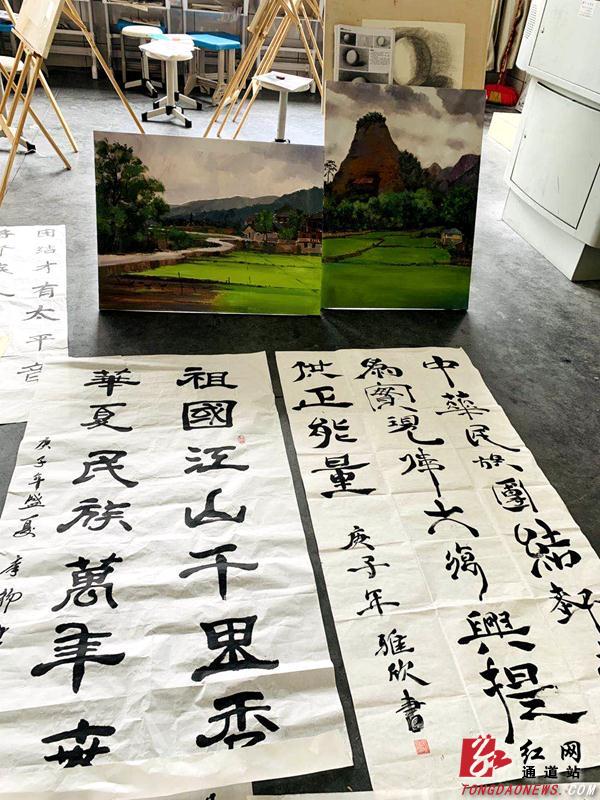 才有太平音
祖國江山千里
華夏民族萬年
庚子年盛夏
中華民族團結
為實現偉大復興提
供正能量
庚子年 雅欣書
红网
通道站
TONGDAONEWS.COM